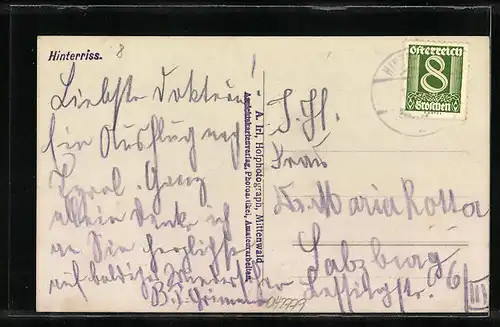 Hinterriss.
8
Liebste Doktorin!
Ein Ausflug nach
Tyrol. Ganz
allein denke ich
an Sie herzlichst
auf baldiges
A. Irl, Hofphotograph, Mittenwald
Ansichtskartenverlag, Photoartikel, Amateurarbeiten
Österreich
8
Groschen
Frau
Dr. Maria Rotta
Salzburg
6/III
047779